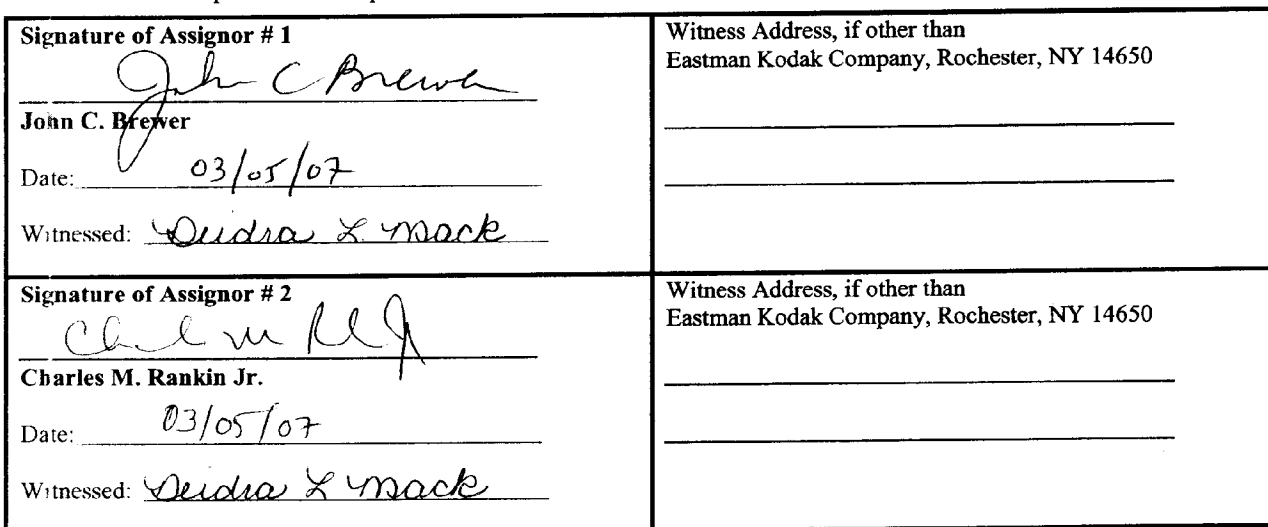 Signature of Assignor # 1
John C Brewer
John C. Brewer
Date: 03/05/07
Witnessed: Deidra L Mack
Witness Address, if other than
Eastman Kodak Company, Rochester, NY 14650
Signature of Assignor # 2
Charles M. Rankin Jr.
Date: 03/05/07
Witnessed: Deidra L Mack
Witness Address, if other than
Eastman Kodak Company, Rochester, NY 14650